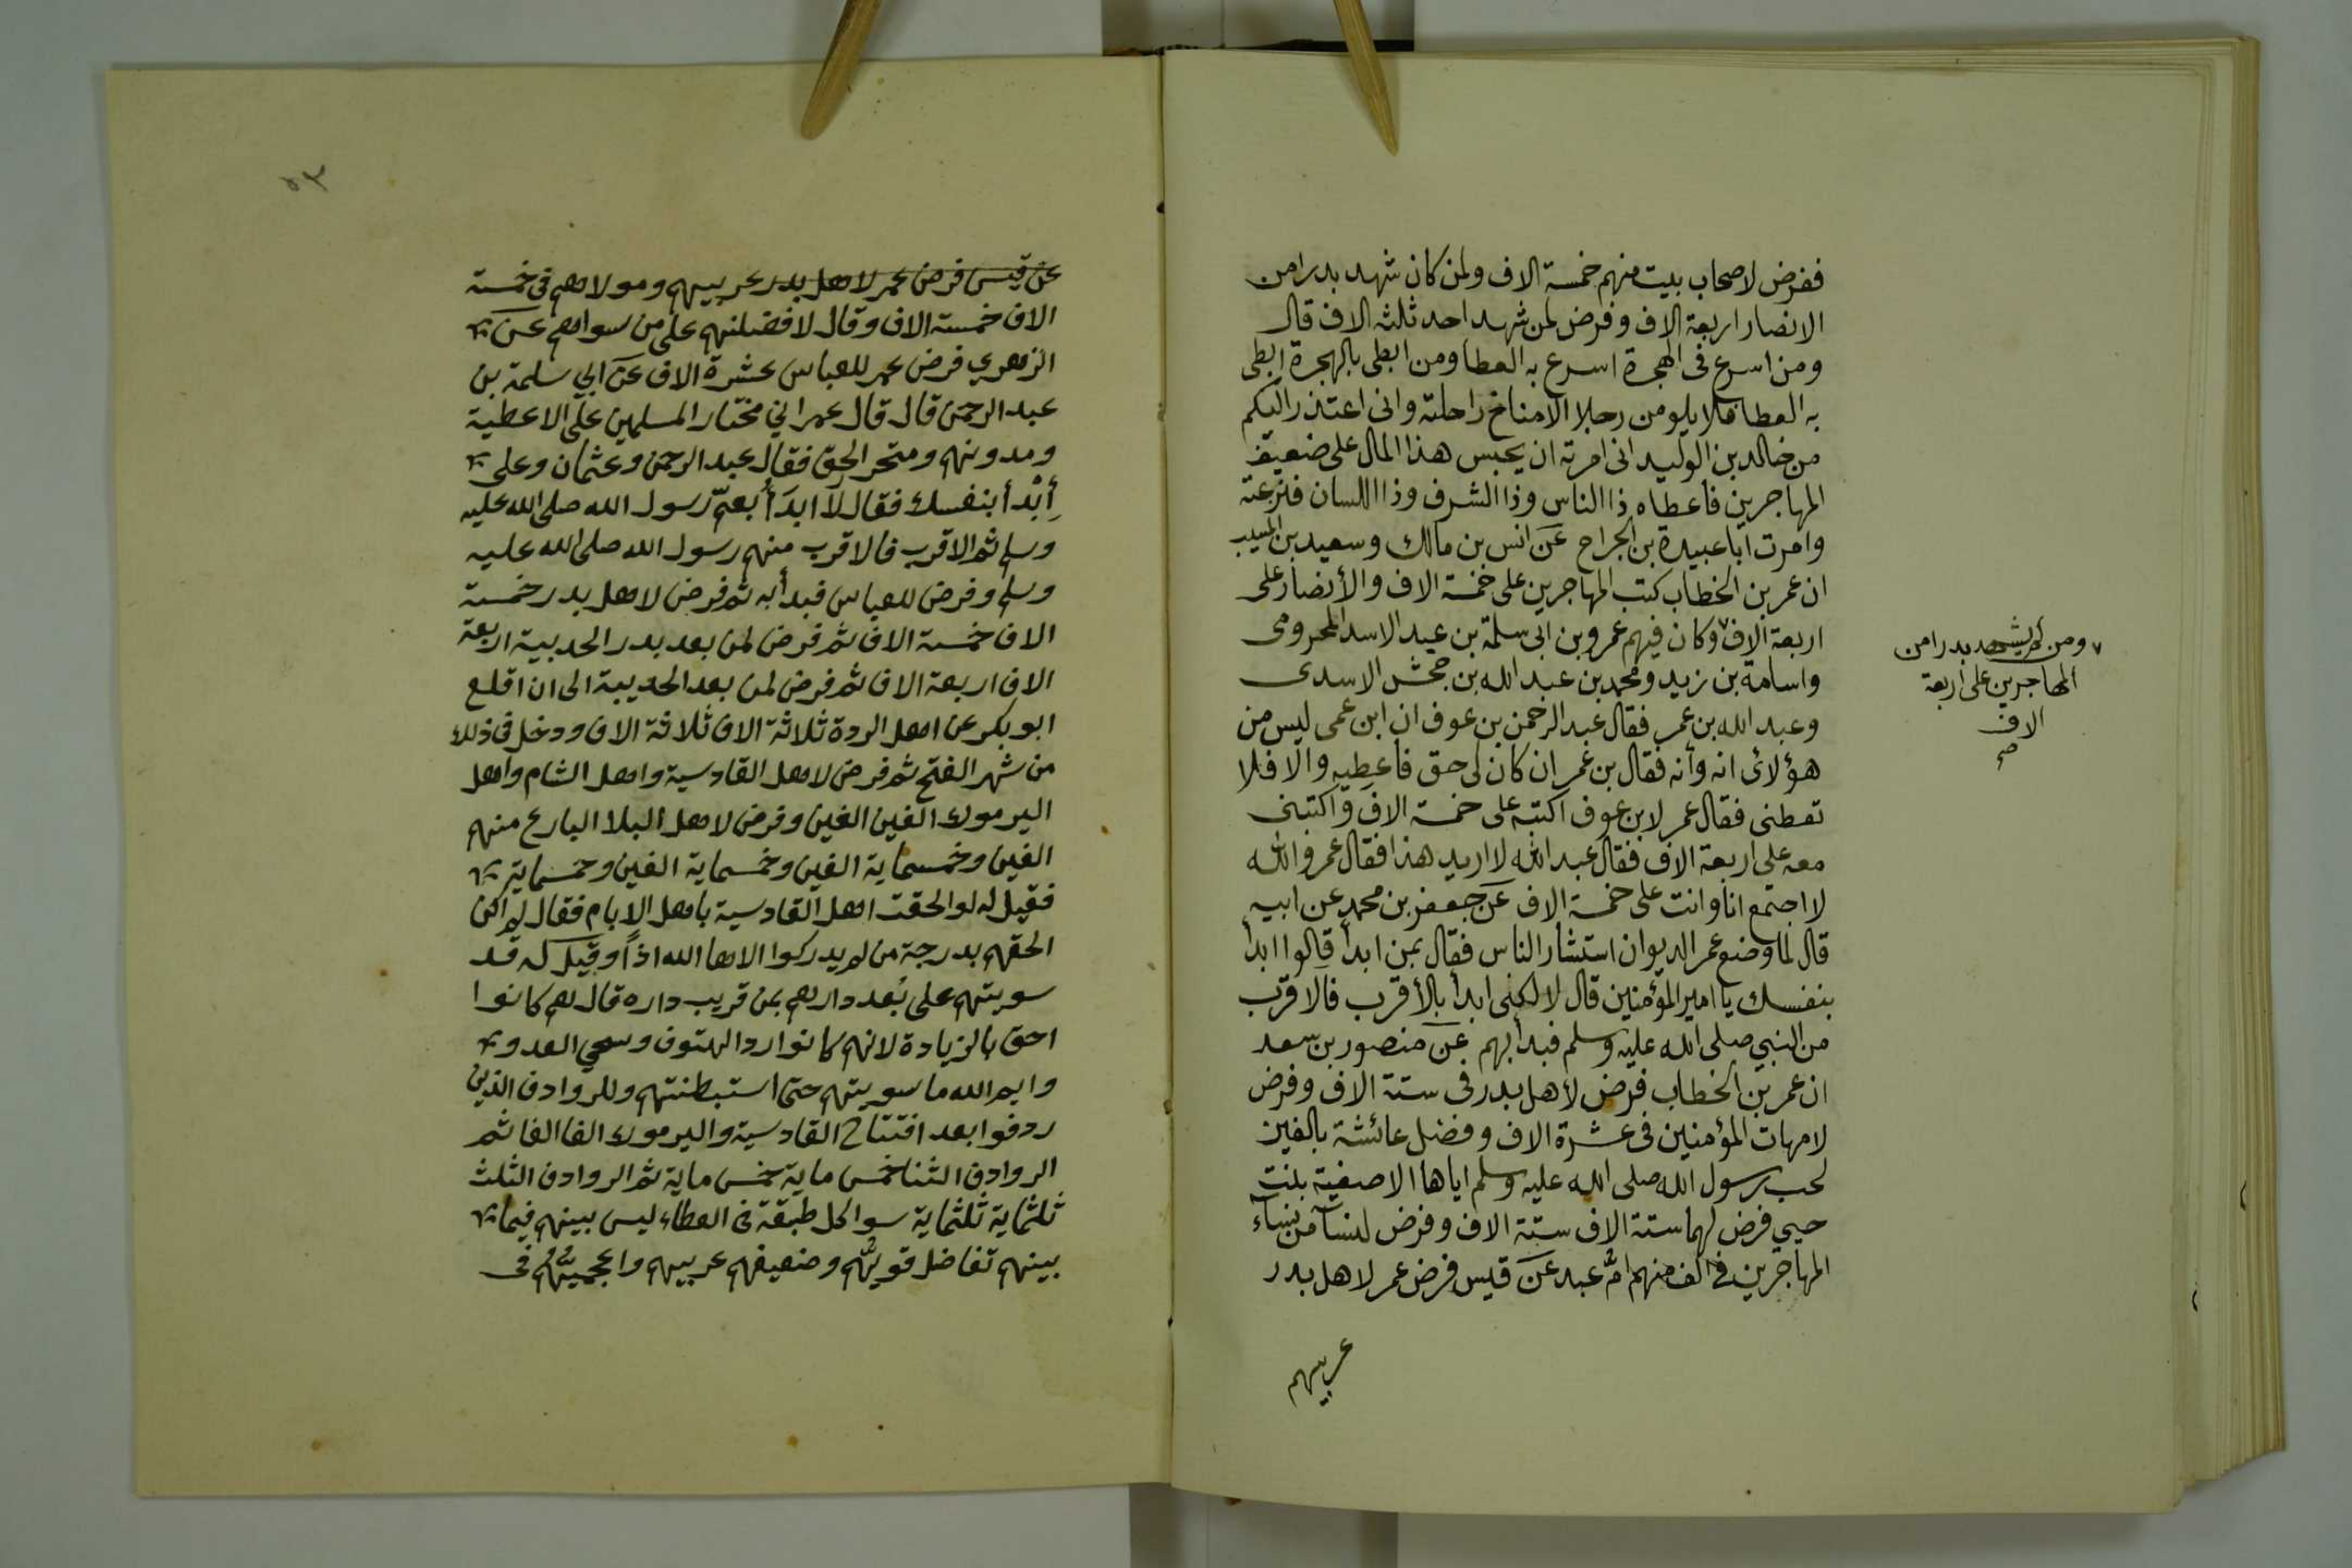 ففرض لاصحاب بيت منهم خمسة الاف ولمن كان شهد بدرا من
الانصار اربعة الاف وفرض لمن شهد احد ثلثه الاف قال
ومن اسرع فى الهجرة اسرع به العطا ومن ابطى بالهجرة ابطى
به العطا فلا يلومن رجلا الا مناخ راحلته وانى اعتذر اليكم
من خالد بن الوليد انى امرته ان يحبس هذا المال على ضعيف
المهاجرين فاعطاه ذا الناس وذا الشرف وذا اللسان فنزعته
وامرت ابا عبيدة بن الجراح عن انس بن مالك وسعيد بن المسيب
ان عمر بن الخطاب كتب المهاجرين على خمسة الاف والأنصار على
اربعة الاف ٧ وكان فيهم عمرو بن ابى سلمة بن عبد الاسد المخرومى
واسامة بن زيد ومحمد بن عبد الله بن جحش الاسدى
وعبد الله بن عمر فقال عبد الرحمن بن عوف ان ابن عمى ليس من
هؤلائ انه وأنه فقال بن عمر ان كان لى حق فاعطيه والا فلا
تعطنى فقال عمر لابن عوف اكتبه على خمسة الاف واكتبنى
معه على اربعة الاف فقال عبد الله لا اريد هذا فقال عمر والله
لا اجتمع انا وانت على خمسة الاف عن جعفر بن محمد عن ابيه
قال لما وضع عمر الديوان استشار الناس فقال بمن ابدأ قالوا ابدأ
بنفسك يا امير المؤمنين قال لا لكنى ابدأ بالأقرب فالاقرب
من النبي صلى الله عليه وسلم فبدأ بهم عن منصور بن سعد
ان عمر بن الخطاب فرض لأهل بدر فى ستة الاف وفرض
لامهات المؤمنين فى عشرة الاف وفضل عائشة بالفين
لحب رسول الله صلى الله عليه وسلم اياها الا صفية بنت
حيي فرض لهما ستة الاف ستة الاف وفرض لنسآ من نسآء
المهاجرين فى الف منهم امّ عبد عن قيس فرض عمر لاهل بدر
عربيهم
٧ ومن لم يشهد بدرا من
المهاجرين على اربعة
الاف
صح
٥٣
عن قيس فرض عمر لاهل بدر عربيهم ومولاهم فى خمسة
الاف خمسة الاف وقال لافضلنهم على من سواهم عن
الزهري فرض عمر للعباس عشرة الاف عن ابي سلمة بن
عبد الرحمن قال قال عمر اني مختار المسلمين على الاعطية
ومدونهم ومتحر الحق فقال عبد الرحمن وعثمان وعلى
إبْدأ بنفسك فقال لا ابدَأُ بعمّ رسول الله صلى الله عليه
وسلم ثم الاقرب فالاقرب منهم رسول الله صلى الله عليه
وسلم وفرض للعباس فبدأ به ثم فرض لاهل بدر خمسة
الاف خمسة الاف ثم فرض لمن بعد بدر الحديبية اربعة
الاف اربعة الاف ثم فرض لمن بعد الحديبية الى ان اقلع
ابو بكر عن اهل الردة ثلاثة الاف ثلاثة الاف ودخل فى ذلك
من شهر الفتح ثم فرض لاهل القادسية واهل الشام واهل
اليرموك الفين الفين وفرض لاهل البلا البارع منهم
الفين وخمسماية الفين وخمسماية الفين وخمسماية
فقيل له لو الحقت اهل القادسية باهل الايام فقال لم اكن
الحقهم بدرجة من لم يدركوا الاها الله اذاً وقيل له قد
سويتهم على بُعد دارهم بمن قريب داره قال هم كانوا
احق بالزيادة لانهم كانوا رد الهتوف وسحي العدو
وايم الله ما سويتهم حتى استبطنتهم وللروادف الذين
ردفوا بعد افتتاح القادسية واليرموك الفا الفا ثم
الروادف الثنا خمس ماية خمس ماية ثم الروادف الثلث
ثلثماية ثلثماية سوا كل طبقة فى العطاء ليس بينهم فيما
بينهم تفاضل قويُّهم وضعيفهم عربيهم واعجميُّهُم فى